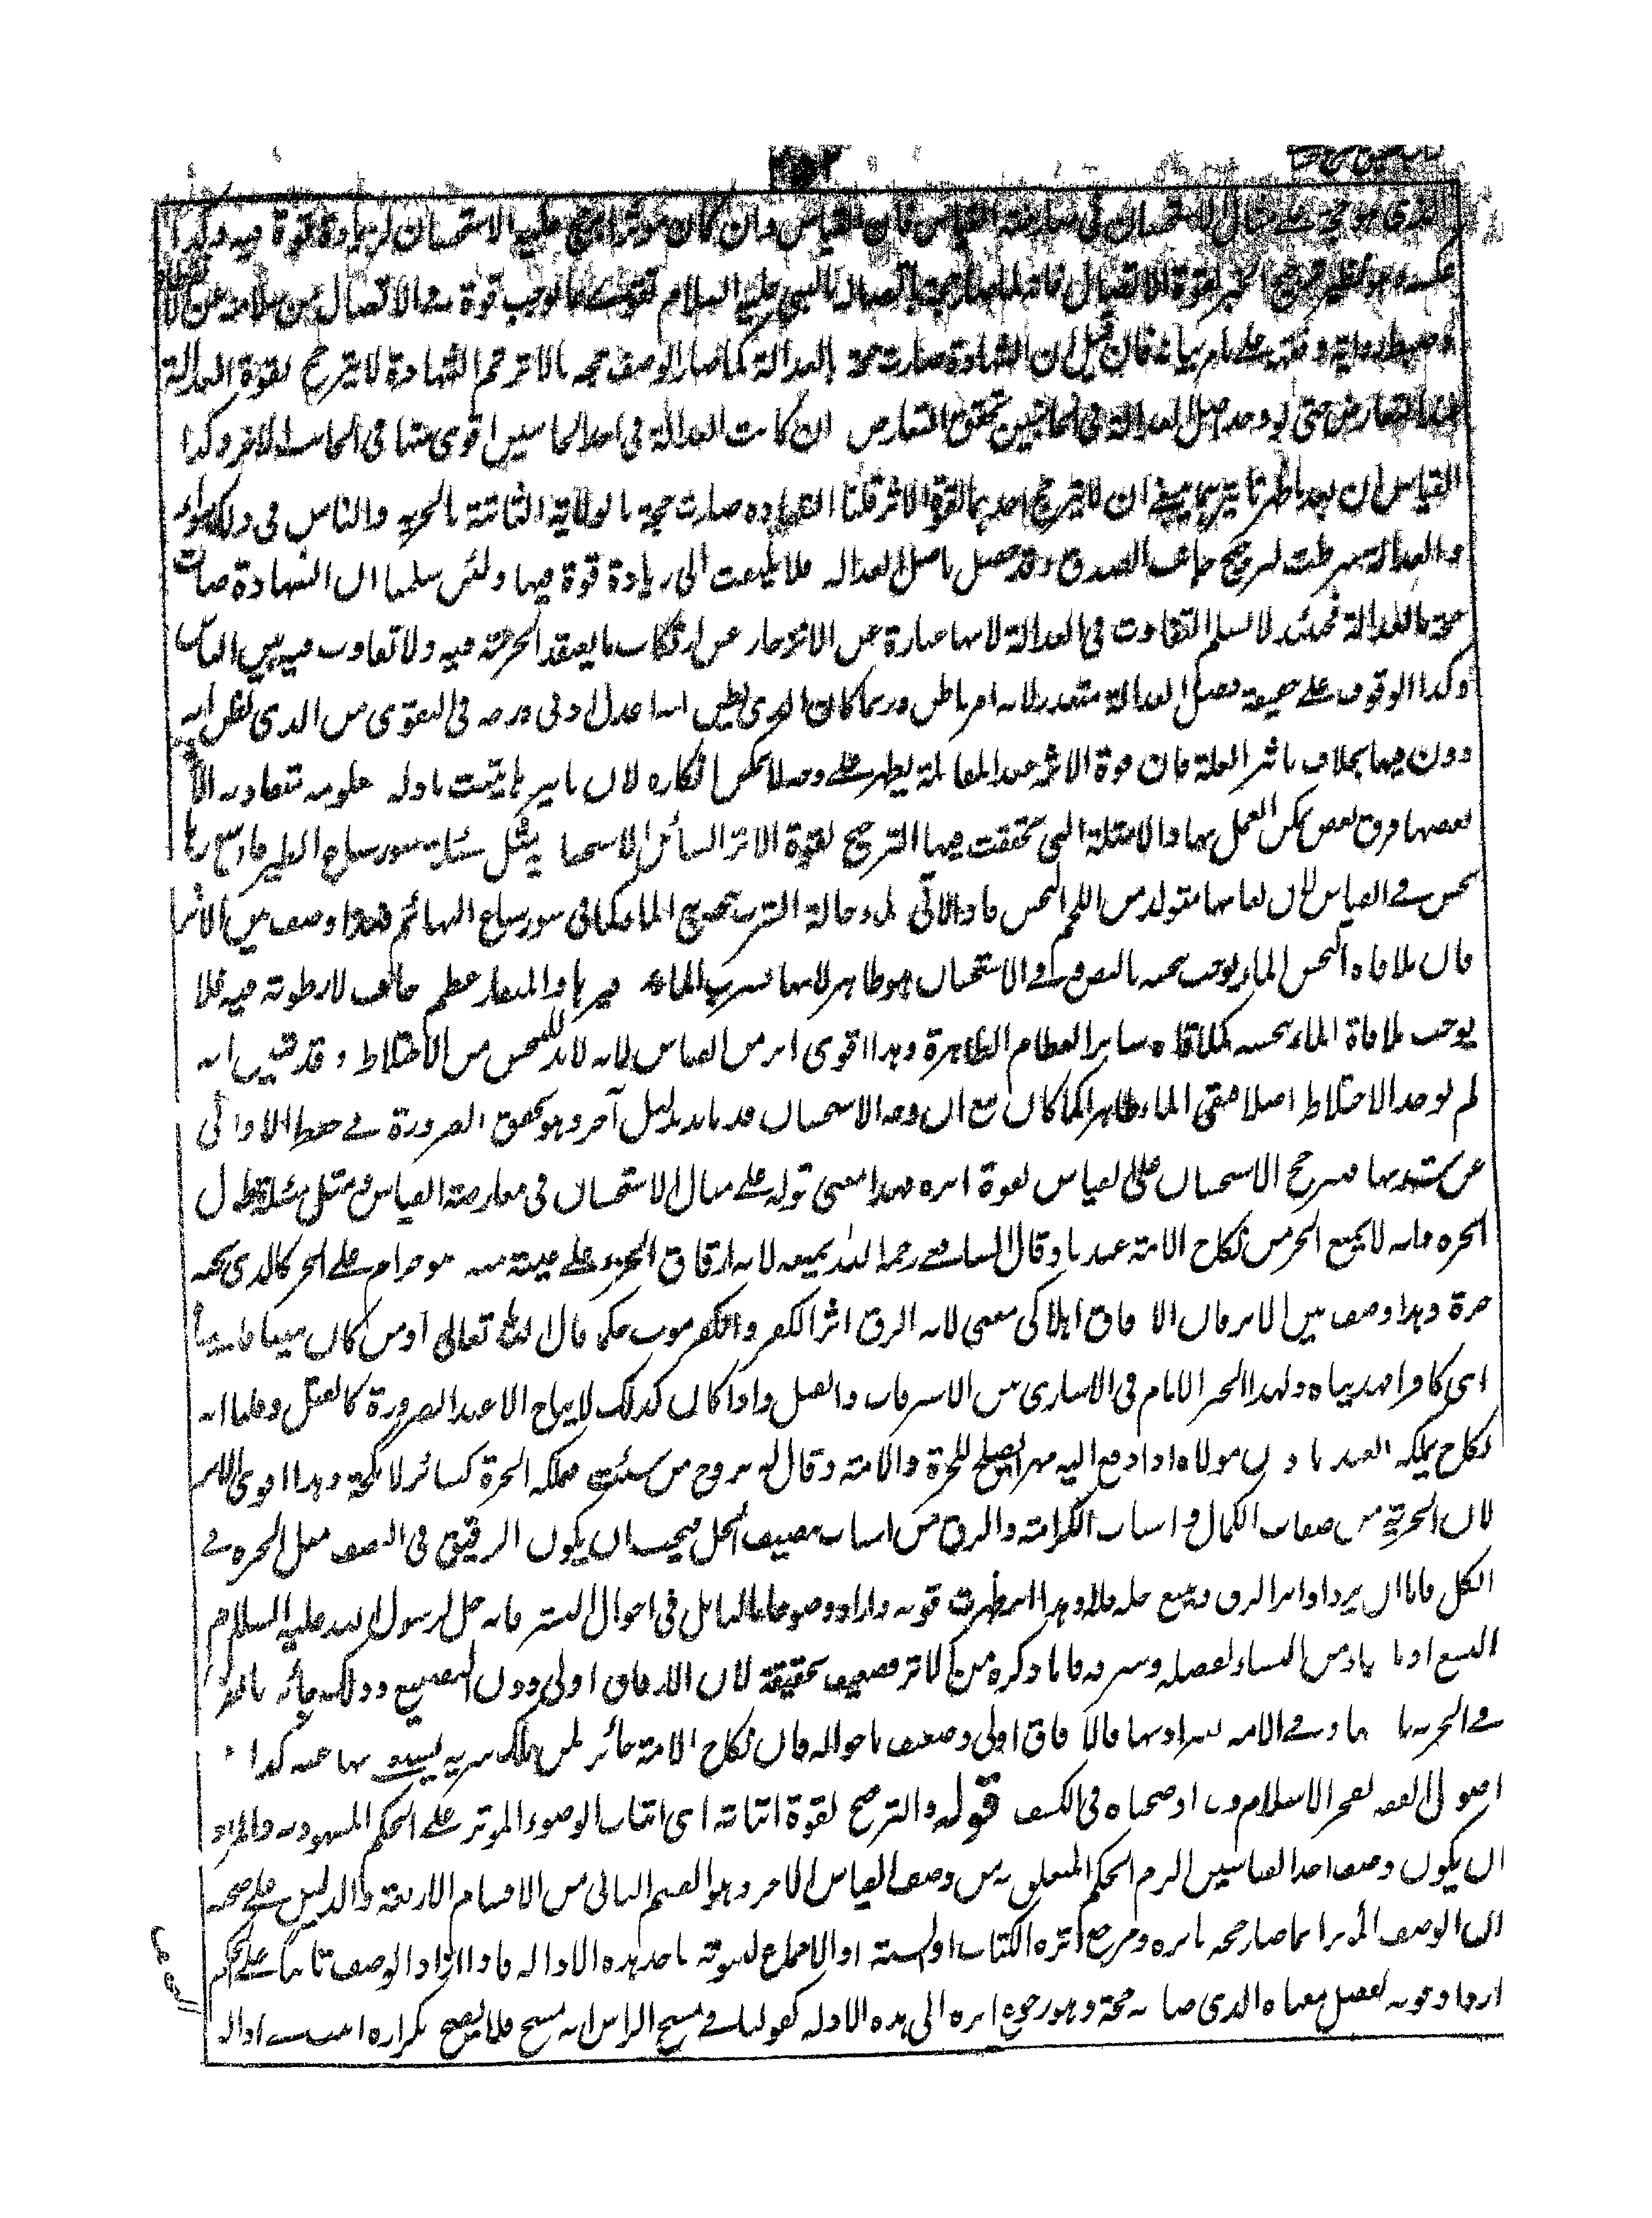 الذى هو حجة على مثال الاستحسان فى معارضة القياس فان القياس وان كان مؤثرا رجح عليه الاستحسان لزيادة قوة فيه وكذا
عكسه وهو نظير ترجيح الخبر لقوة الاتصال فانه لما صار حجة بالاتصال بالنبى عليه السلام يقوى بما يوجب قوة فى الاتصال من
على ما مر بيانه فان قيل ان الشهادة صارت حجة بالعدالة كما صار الوصف حجة بالاثر ثم الشهادة لا يترجح لقوة العدالة
عند التعارض حتى لو وجد اصل العدالة فى الجانبين تحقق التعارض ان كانت العدالة فى احد الجانبين اقوى منها فى الجانب الاخر وكذا
القياس ان بعد ما ظهر تاثيرهما ينبغى ان لا يترجح احدهما لقوة الاثر قلنا الشهادة صارت حجة بالولاية الثابتة بالحرية والناس فى ذلك سواء
والعدالة شرطت لترجيح جانب الصدق وقد حصل باصل العدالة فلا يلتفت الى زيادة قوة فيها ولئن سلمنا ان الشهادة صارت
حجة بالعدالة فحينئذ لا نسلم التفاوت فى العدالة لانها عبارة عن الانزجار عن ارتكاب ما يعتقد الحرمة فيه ولا تفاوت فيه بين الناس
وكذا الوقوف على حقيقة فضل العدالة متعذر لانه امر باطن وربما كان الذى يظن انه اعدل ادنى درجة فى التقوى من الذى يظن انه
دون فيها بخلاف تاثير العلة فان قوة الاثر عند المقابلة يظهر على وجه لا يمكن انكاره لان تاثيرها يثبت بادلة معلومة متفاوتة الاثر
بعضها فوق بعض يمكن العمل بها والامثلة التى تحققت فيها الترجيح لقوة الاثر السائل الاستحسا يثمثل مسئلة سور سباع الطير فانه
نجس فى القياس لان لعابها متولد من اللحم النجس فاذا لاقى الماء حالة الشرب تنجس الماء كما فى سور سباع البهائم فهذا وصف بين الاثر
فان ملاقاة النجس الماء يوجب نجسه بالنص وفى الاستحسان هو طاهر لانها تشرب الماء بمنقارها والمنقار عظم جاف لا رطوبة فيه فلا
يوجب ملاقاة الماء نجسه كملاقاة سائر العظام الطاهرة وهذا اقوى اثرا من القياس لانه لا بد للنجس من الاختلاط وقد تبين انه
لم يوجد الاختلاط اصلا فبقى الماء طاهرا كما كان مع ان وجه الاستحسان قد تايد بدليل آخر وهو تحقق الضرورة فى حفظ الاوانى
عن سورها فيرجح الاستحسان على القياس لقوة اثره فهذا معنى قوله على مثال الاستحسان فى معارضة القياس ومثل مسئلة طول
الحرة فانه لا يمنع الحر من نكاح الامة عندنا وقال الشافعى رحمه الله يمنعه لانه ارقاق الجزء على غنية منه هو حرام على الحر كالذى تحته
حرة وهذا وصف بين الاثر فان الارقاق اهلاك معنى لانه الرق اثر الكفر والكفر موت حكما قال الله تعالى اومن كان ميتا فاحييناه
اى كافرا فهديناه ولهذا يخير الامام فى الاسارى بين الاسترقاق والقتل واذا كان كذلك لا يباح الا عند الضرورة كالقتل وقلنا انه
نكاح يملكه العبد باذن مولاه اذا دفع اليه مهرا يصلح للحرة والامة وقال له تزوج من شئت فيملكه الحرة كسائر الانكحة وهذا اقوى الاثر
لان الحرية من صفات الكمال واسباب الكرامة والرق من اسباب تنصيف الحل فيجب ان يكون الرقيق فى النصف مثل الحر فى
الكل فاما ان يزداد اثر الرق ويتسع حله فلا وهذا اثر ظهرت قوته وازداد وضوحا بالتامل فى احوال البشر فانه حل لرسول الله عليه السلام
التسع او ما زاد من النساء لفضله وشرفه فاما ما ذكره من الاثر فضعيف بحقيقة لان الارقاق اولى دون التضييع وذلك جائز بالعزل
فى الحرة باذنها وفى الامة بغير اذنها فالارقاق اولى وضعيف باحواله فان نكاح الامة جائز لمن يملك سرية يستغنى بها عنه كذا
اصول الفقه لفخر الاسلام وقد اوضحناه فى الكشف قوله والترجيح لقوة اثباته اى اثبات الوصف المؤثر على الحكم المشهود به والمراد
ان يكون وصف احد القياسين الزم الحكم المتعلق به من وصف القياس الاخر وهو القسم الثانى من الاقسام الاربعة والدليل على صحته
ان الوصف المؤثر انما صار حجة باثره ومرجع اثره الكتاب او السنة او الاجماع لثبوته باحد هذه الادلة فاذا ازداد الوصف ثباتا على الحكم
ازداد قوة لفضل معناه الذى صار به حجة وهو رجوع اثره الى هذه الادلة كقولنا فى مسح الراس انه مسح فلا يصح تكراره اثبت